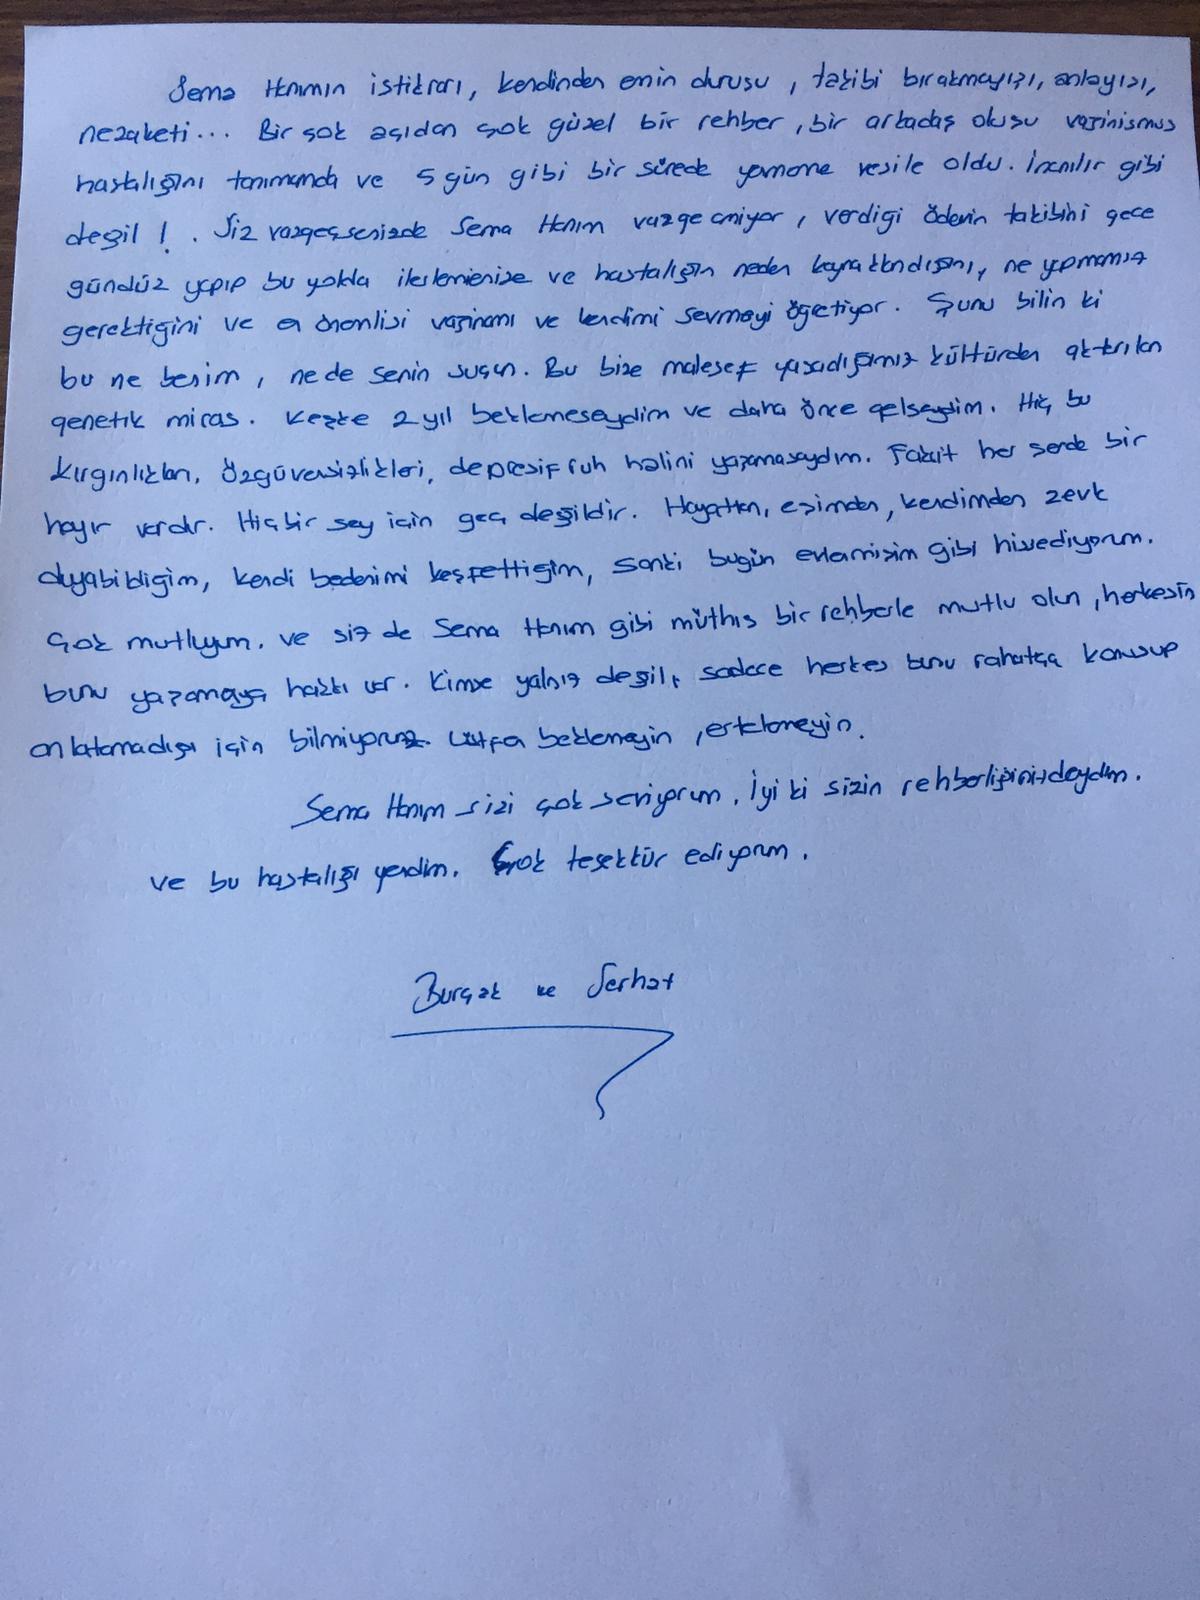 Sema Hanımın istikrarı, kendinden emin durusu, takibi bırakmayışı, anlayışı,
nezaketi... Bir çok açıdan çok güzel bir rehber, bir arkadaş oluşu vajinismus
hastalığını tanımamda ve 5 gün gibi bir sürede yenmeme vesile oldu. İnanılır gibi
değil! . Siz vazgeçsenizde Sema Hanım vazgeçmiyor, verdiği ödevin takibini gece
gündüz yapıp bu yolda ilerlemenize ve hastalığın neden kaynaklandığını, ne yapmamız
gerektiğini ve en önemlisi vajinamı ve kendimi sevmeyi öğretiyor. Şunu bilin ki
bu ne benim, ne de senin suçun. Bu bize malesef yaşadığımız kültürden aktarılan
genetik miras. Keşke 2 yıl beklemeseydim ve daha önce gelseydim. Hiç bu
kırgınlıkları, özgüvensizlikleri, depresif ruh halini yaşamasaydım. Fakat her şerde bir
hayır vardır. Hiçbir şey için geç değildir. Hayattan, eşimden, kendimden zevk
duyabildiğim, kendi bedenimi keşfettiğim, sanki bugün evlenmişim gibi hissediyorum.
Çok mutluyum. ve siz de Sema Hanım gibi müthiş bir rehberle mutlu olun, herkesin
bunu yaşamaya hakkı var. Kimse yalnız değil, sadece herkes bunu rahatça konuşup
anlatamadığı için bilmiyoruz. Lütfen beklemeyin, ertelemeyin.
Sema Hanım sizi çok seviyorum. İyi ki sizin rehberliğinizdeydim.
ve bu hastalığı yendim. Çok teşekkür ediyorum.
Burçak ve Serhat